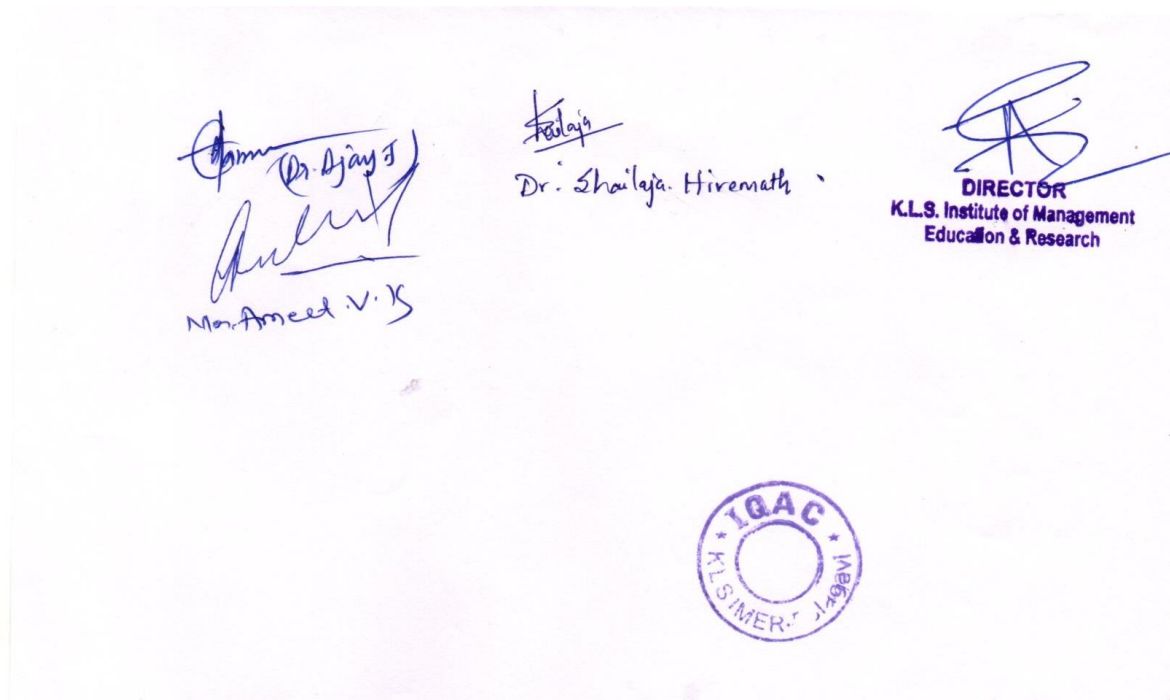 (Dr. Ajay J)
Mr. Ameet .V. K
Shailaja
Dr. Shailaja. Hiremath
DIRECTOR
K.L.S. Institute of Management
Education & Research
★ IQAC ★
KLS IMER- Belagavi